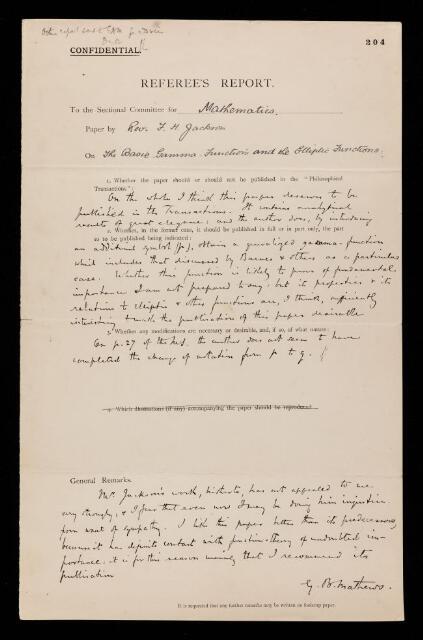 CONFIDENTIAL.
204
REFEREE'S REPORT.
To the Sectional Committee for Mathematics.
Paper by Rev. F. H. Jackson
On The Basic Gamma Function and the Elliptic Functions.
1. Whether the paper should or should not be published in the "Philosophical
Transactions":
On the whole I think this paper deserves to be
published in the Transactions. It contains analytical
results of great elegance; and the author does, by introducing
2. Whether, in the former case, it should be published in full or in part only, the part
so to be published being indicated:
an additional symbol obtain a generalized gamma-function
which includes that discussed by Barnes & others as a particular
case. Whether this function is likely to prove of fundamental
importance I am not prepared to say; but its properties & its
relations to elliptic & other functions are, I think, sufficiently
interesting to make the publication of this paper desirable
3. Whether any modifications are necessary or desirable, and, if so, of what nature:
On p. 27 of the the author does not seem to have
completed the change of notation from p to q.
4. Which illustrations (if any) accompanying the paper should be reproduced
General Remarks.
Mr. Jackson's work, hitherto, has not appealed to me
very strongly, & I fear that even now I may be doing him injustice
from want of sympathy. I like this paper better than its predecessors,
because it has definite contact with function-theory of undoubted im-
portance: it is for this reason mainly that I recommend its
publication
G. B. Mathews.
It is requested that any further remarks may be written on foolscap paper.